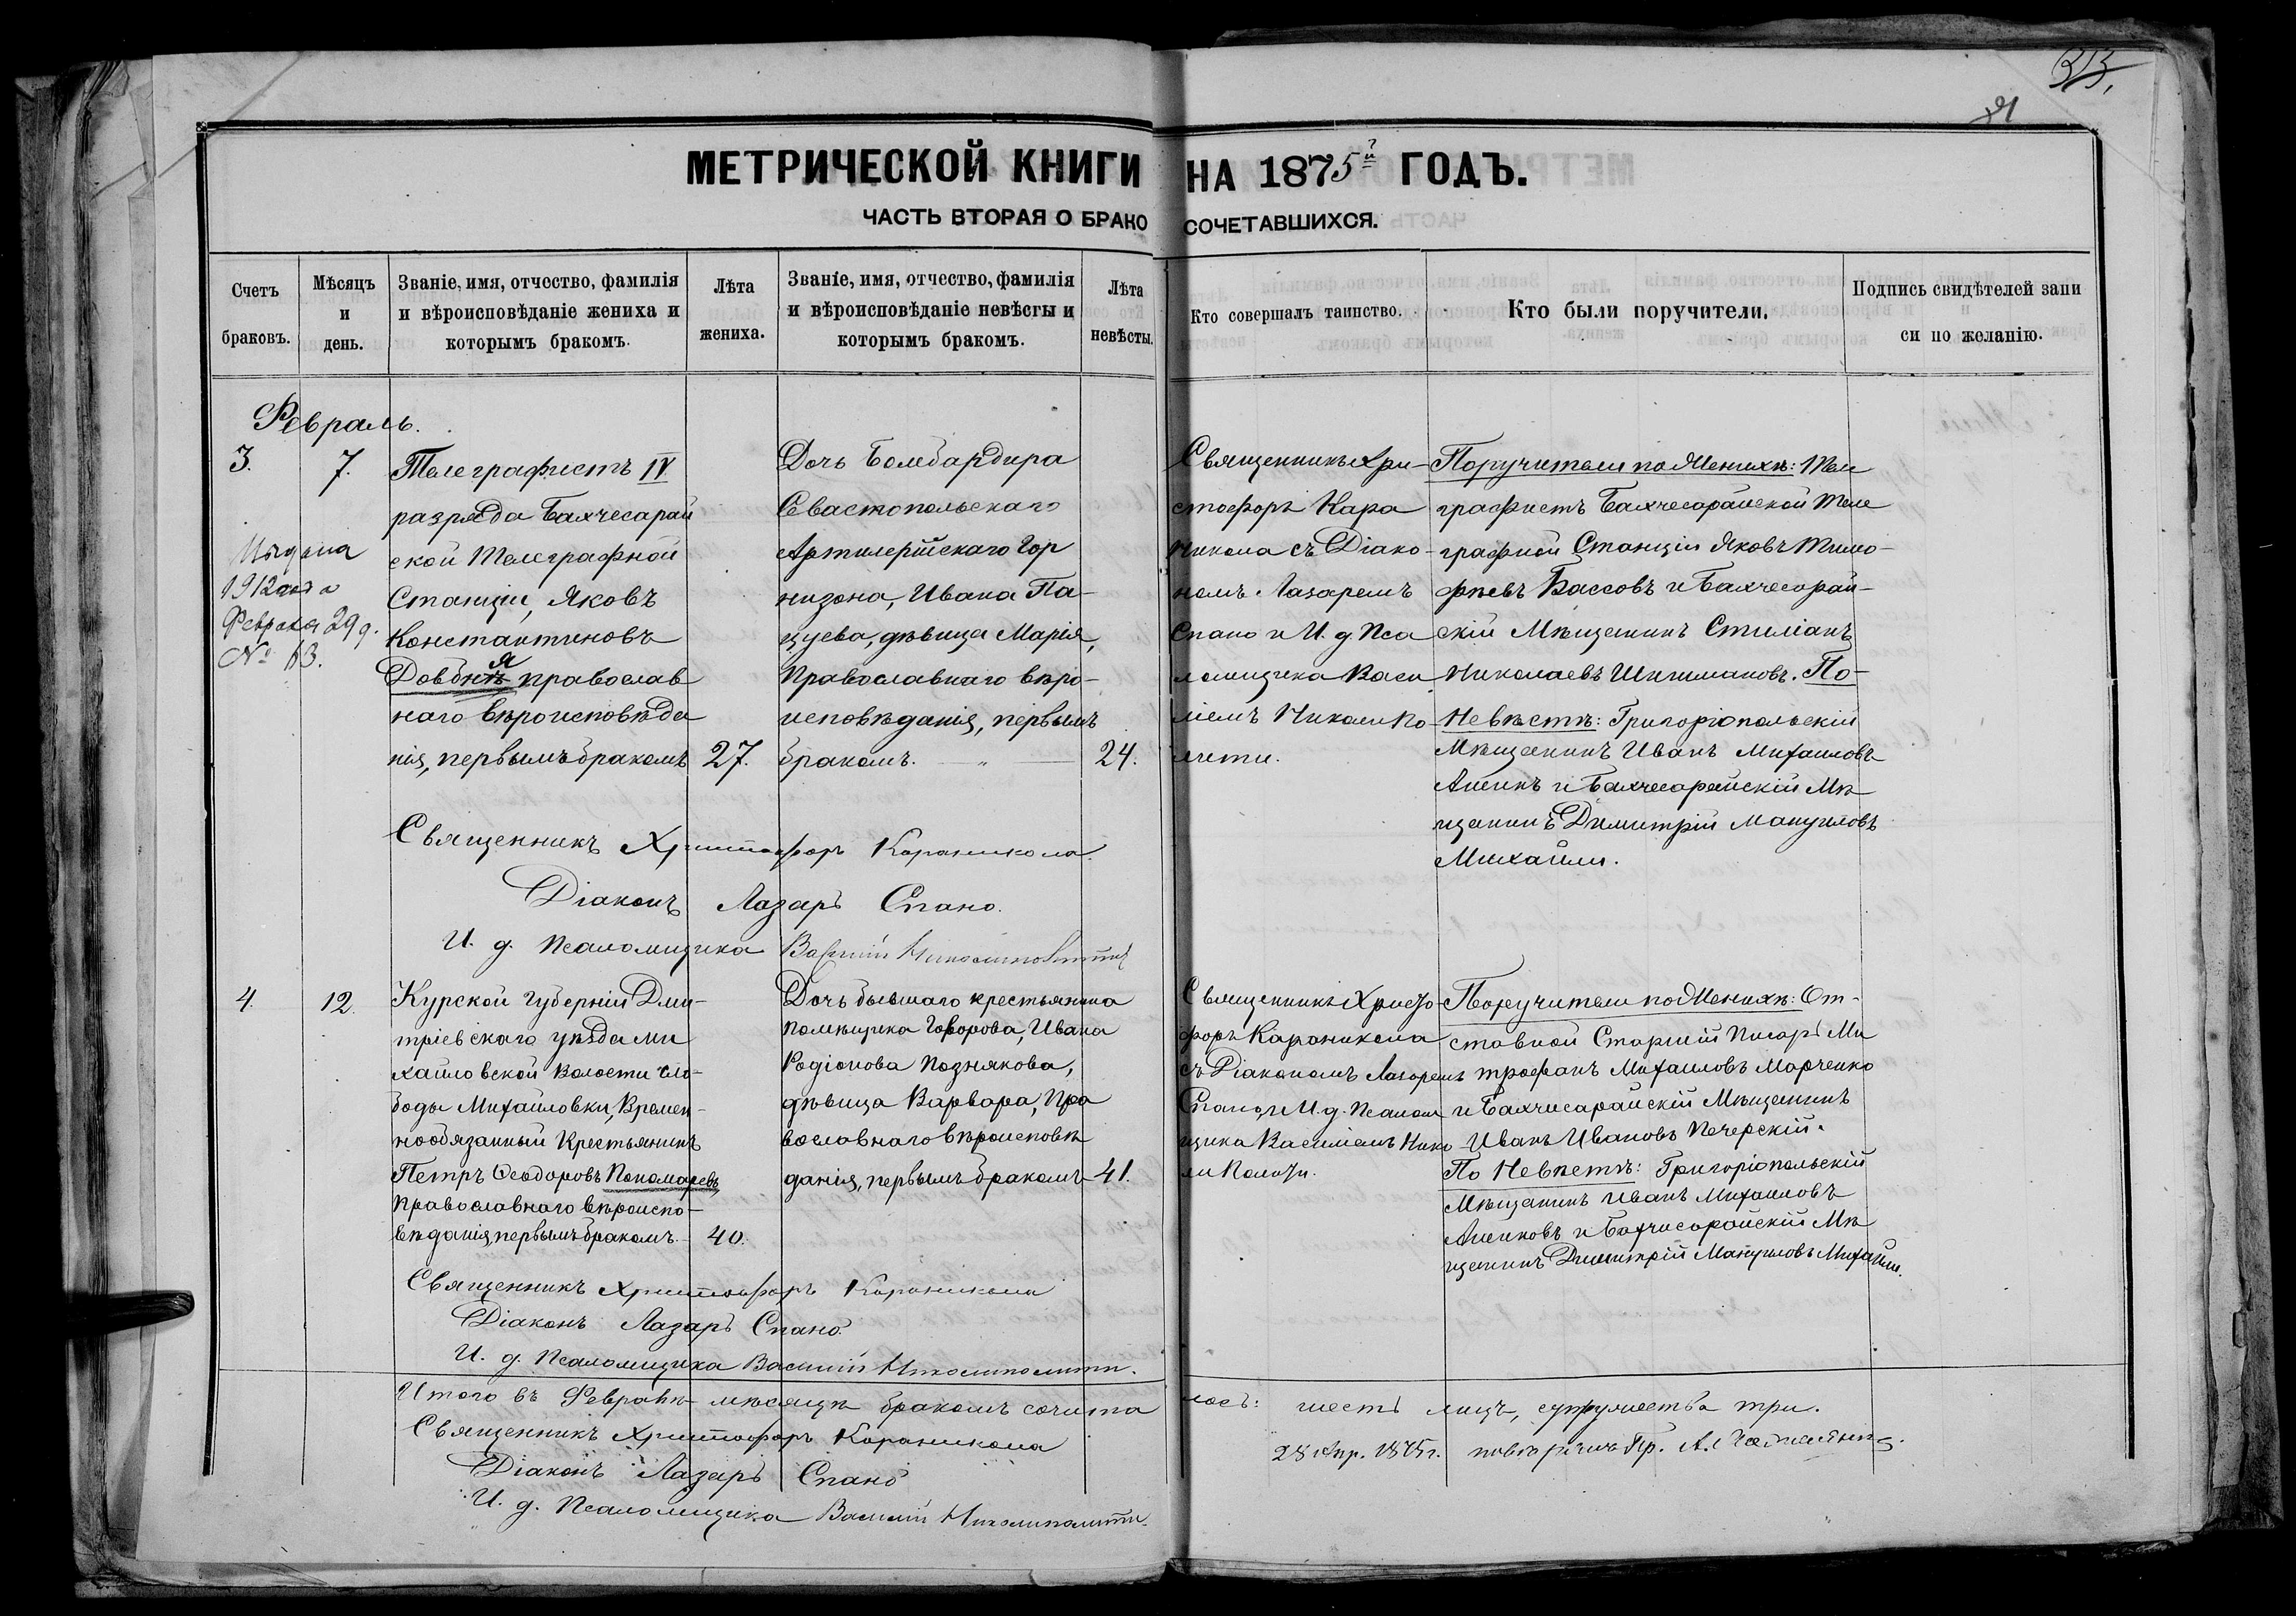 313.
МЕТРИЧЕСКОЙ КНИГИ НА 1875й ГОДЪ.
ЧАСТЬ ВТОРАЯ О БРАКОСОЧЕТАВШИХСЯ.
Счетъ
браковъ.
Мѣсяцъ
и
день.
Званіе, имя, отчество, фамилія
и вѣроисповѣданіе жениха и
которымъ бракомъ.
Лѣта
жениха.
Званіе, имя, отчество, фамилія
и вѣроисповѣданіе невѣсты и
которымъ бракомъ.
Лѣта
невѣсты.
Кто совершалъ таинство.
Кто были поручители.
Подпись свидѣтелей запи
си по желанію.
Февраль.
3.
7.
Выдана
1912 года
Февраля 29 д.
№ 63.
Телеграфистъ IV
разряда Бахчесарай
ской Телеграфной
Станціи, Яковъ
Константиновъ
Довбня православ
наго вѣроисповѣда
нія, первымъ бракомъ
27.
Дочь Бомбардира
Севастопольскаго
Артилерійскаго Гор
низона, Ивана Па-
цуева, дѣвица Марія,
Православнаго вѣро-
исповѣданія, первымъ
бракомъ. — " —
24.
Священникъ Хри-
стофоръ Кара
Никола съ Діако-
номъ Лазаремъ
Спано и И. д. Пса
ломщика Васи
ліемъ Николипо
лити.
Поручители по Женихѣ: Теле
графистъ Бахчесарайской Теле
графной Станціи Яковъ Тимо-
фѣевъ Бассовъ и Бахчесарай-
скій Мѣщанинъ Стиліанъ
Николаевъ Шишмановъ. По-
Невѣстѣ: Григоріопольскій
Мѣщанинъ Иванъ Михаиловъ
Ашикъ и Бахчесарайскій Мѣ
щанинъ Димитрій Мануиловъ
Михайли.
Священникъ Христофоръ Караникола.
Діаконъ Лазарь Спано.
И. д. Псаломщика Василій Николиполити
4.
12.
Курской Губерніи Дми-
тріевскаго уѣзда Ми
хайловской Волости Сло-
боды Михайловки, Времен-
нообязанный Крестьянинъ
Петръ Ѳеодоровъ Пономаревъ
Православнаго вѣроиспо-
вѣданія, первымъ бракомъ.
40.
Дочь бывшаго крестьянина
помѣщика Говорова, Ивана
Родіонова Познякова,
дѣвица Варвара, Пра
вославнаго вѣроисповѣ
данія, первымъ бракомъ
41.
Священникъ Христо-
форъ Караникола
съ Діакономъ Лазаремъ
Спано и И. д. Псалом
щика Василіемъ Нико
ли Полити.
Поручители по Женихѣ: От-
ставной Старшій Писарь Ми
трофанъ Михаиловъ Марченко
и Бахчисарайскій Мѣщанинъ
Иванъ Ивановъ Печерскій.
По Невѣстѣ: Григоріопольскій
Мѣщанинъ Иванъ Михаиловъ
Ашиковъ и Бахчисарайскій Мѣ
щанинъ Димитрій Мануиловъ Михайли.
Священникъ Христофоръ Караникола
Діаконъ Лазарь Спано.
И. д. Псаломщика Василій Николиполити.
Итого въ Февралѣ мѣсяцѣ бракомъ сочета
лось: шесть лицъ, супружества три.
Священникъ Христофоръ Караникола
28 Апр. 1875 г.
Діаконъ Лазарь Спано
И. д. Псаломщика Василій Николиполити.